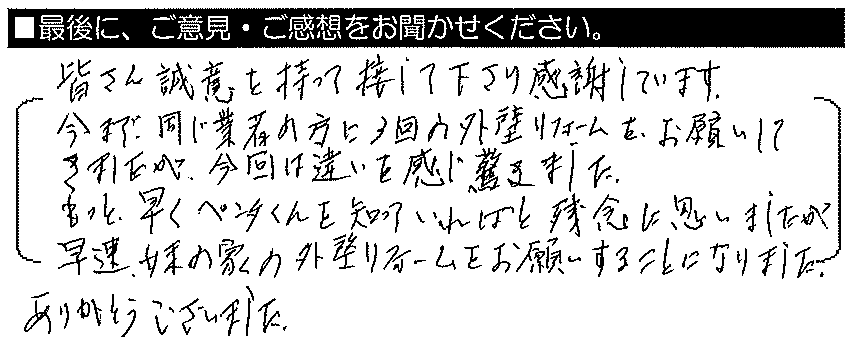 ■最後に、ご意見・ご感想をお聞かせください。
皆さん誠意を持って接して下さり感謝しています。
今まで、同じ業者の方に3回の外壁リフォームを、お願いして
きましたが、今回は違いを感じ驚きました。
もっと、早くペンタくんを知っていればと残念に思いましたが
早速、妹の家の外壁リフォームをお願いすることになりました。
ありがとうございました。